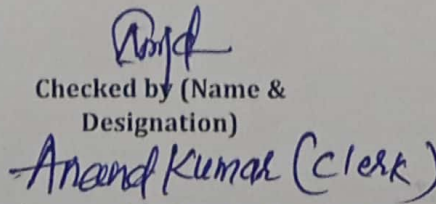 Checked by (Name &
Designation)
Anand Kumar (Clerk)